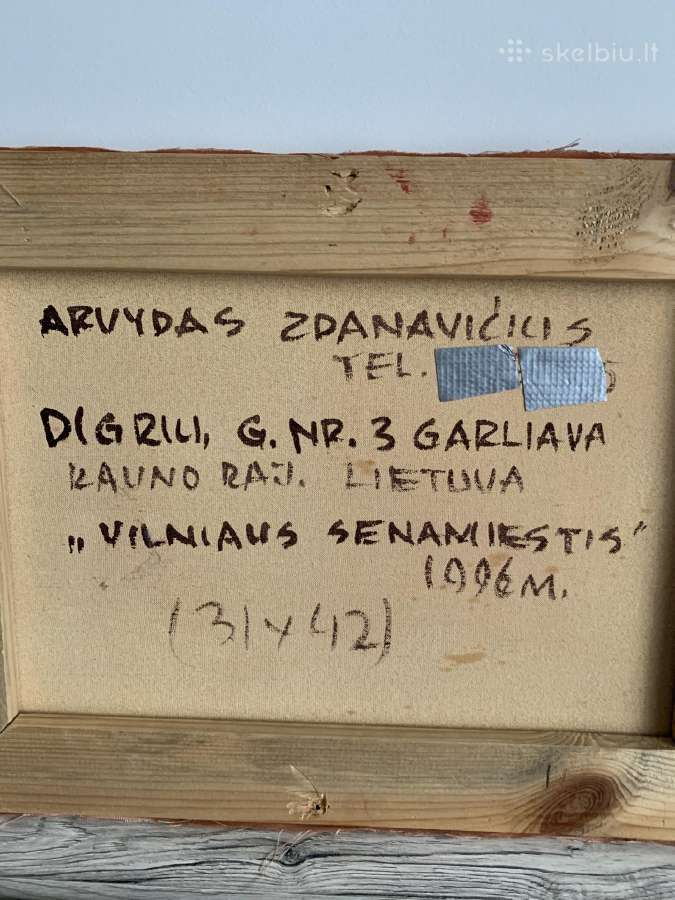 skelbiu.lt
ARVYDAS ZDANAVIČIUS
TEL.
DIGRIU, G. NR. 3 GARLIAVA
KAUNO RAJ. LIETUVA
„VILNIAUS SENAMIESTIS"
1996 M.
(31 x 42)